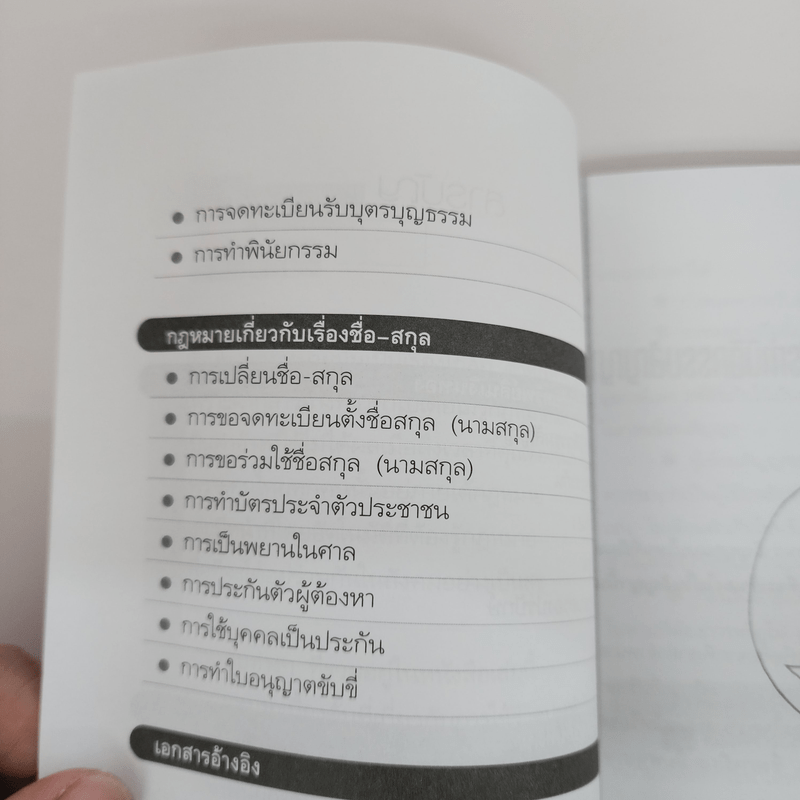 • การจดทะเบียนรับบุตรบุญธรรม
• การทำพินัยกรรม
กฎหมายเกี่ยวกับเรื่องชื่อ-สกุล
• การเปลี่ยนชื่อ-สกุล
• การขอจดทะเบียนตั้งชื่อสกุล (นามสกุล)
• การขอร่วมใช้ชื่อสกุล (นามสกุล)
• การทำบัตรประจำตัวประชาชน
• การเป็นพยานในศาล
• การประกันตัวผู้ต้องหา
• การใช้บุคคลเป็นประกัน
• การทำใบอนุญาตขับขี่
เอกสารอ้างอิง